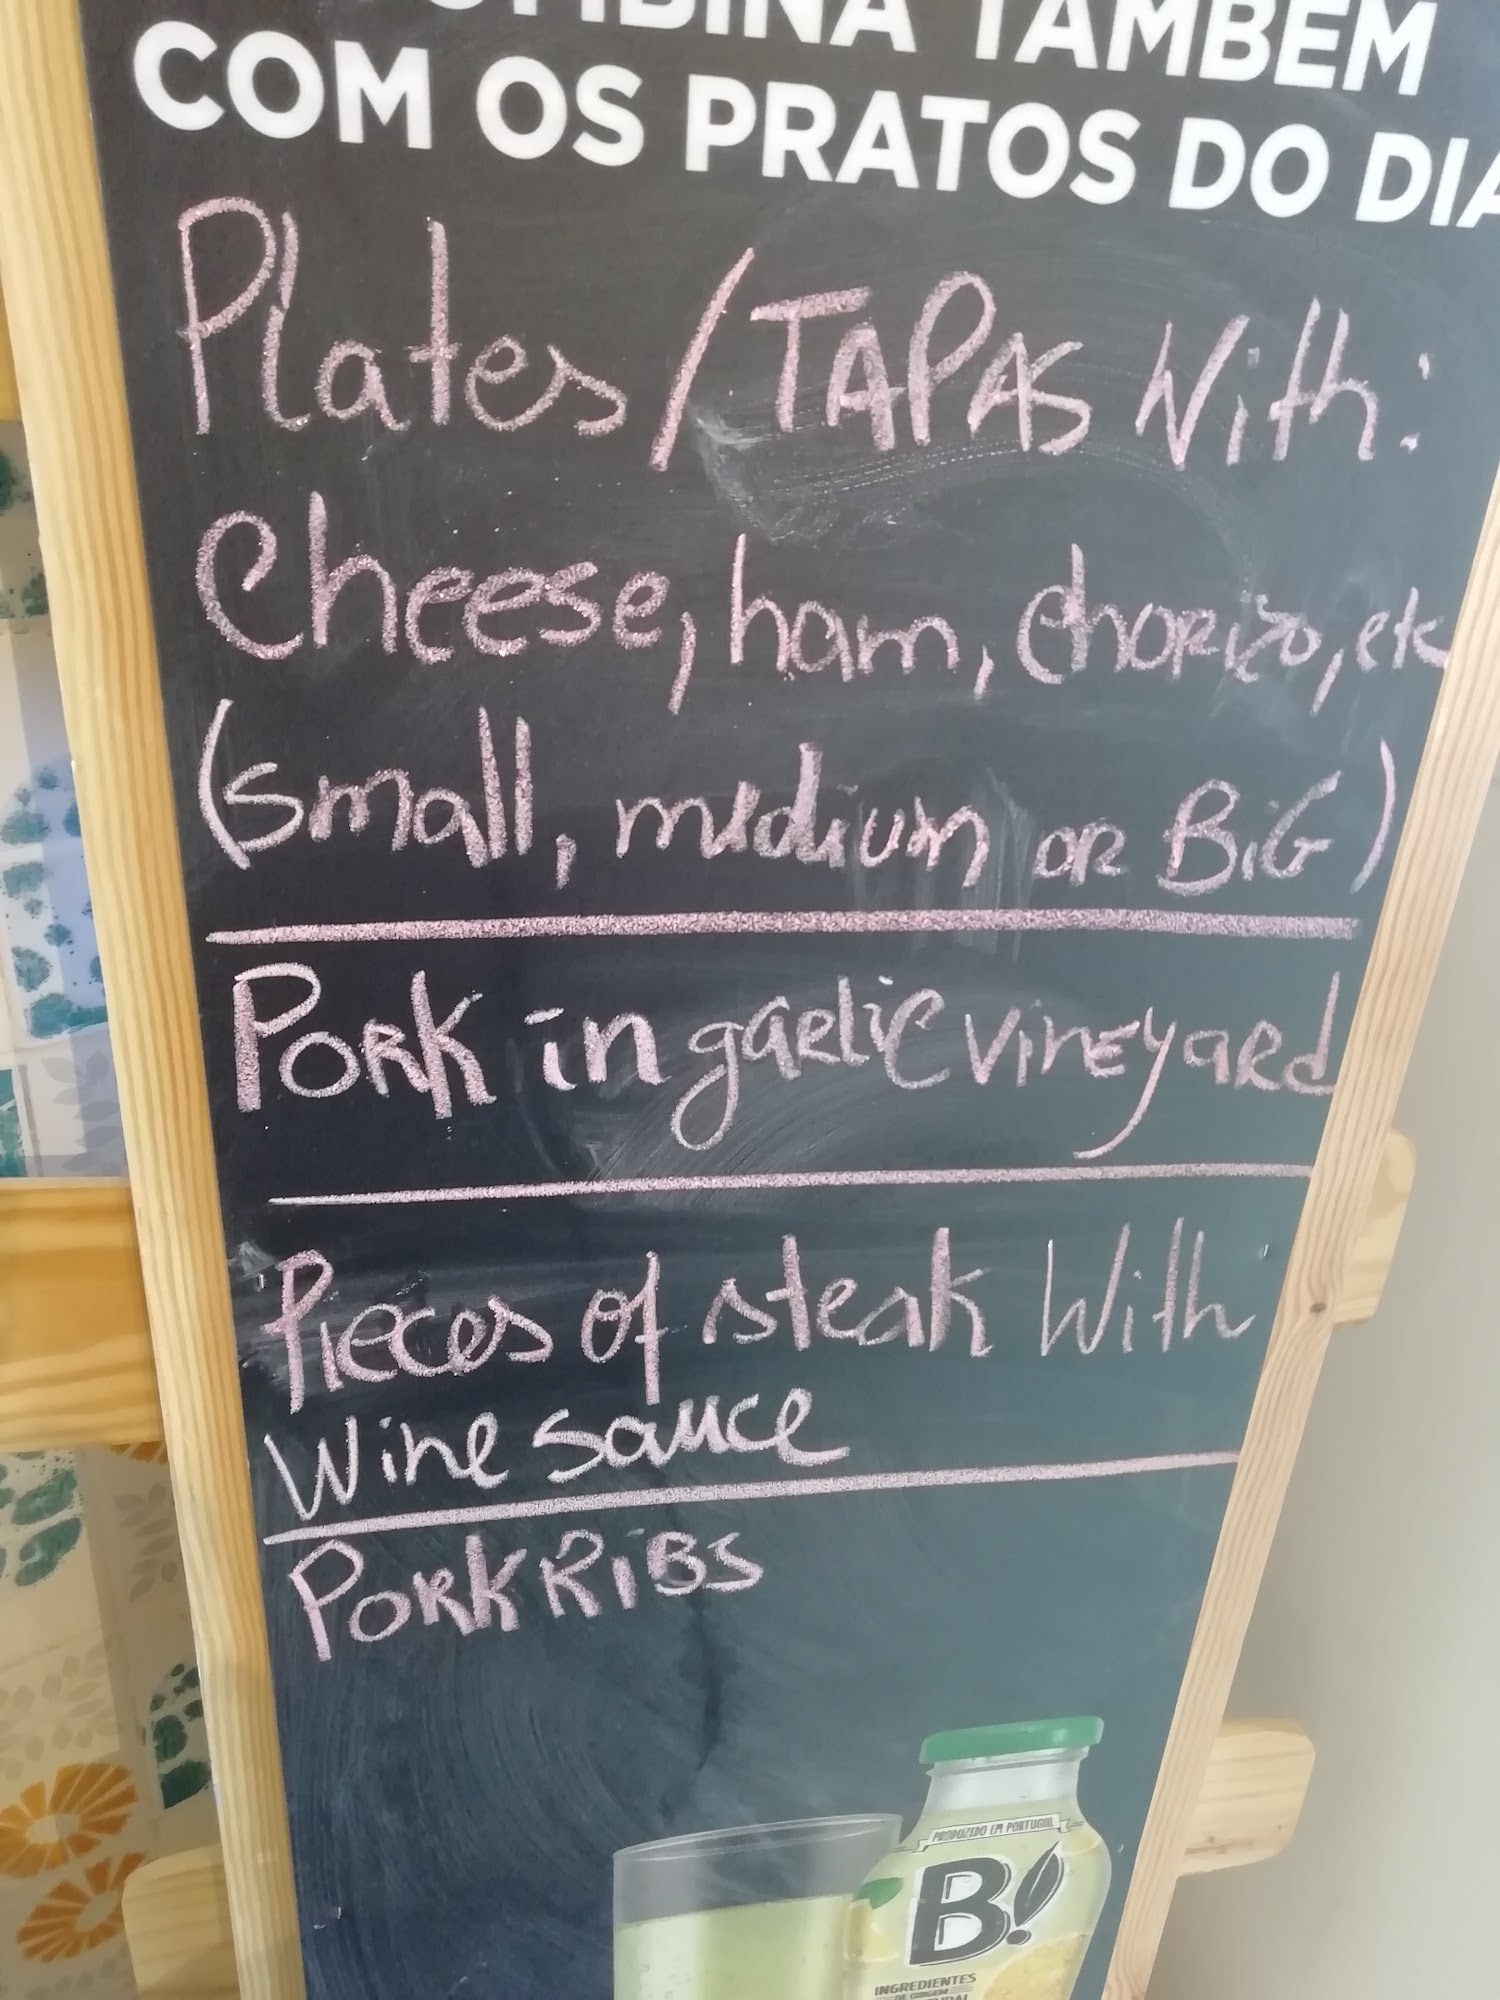 TAMBÉM
COM OS PRATOS DO DIA
Plates/TAPAS With:
Cheese, ham, chorizo, etc
(small, medium or BiG)
PORK in garlic vineyard
Pieces of steak With
Wine sauce
PORK RiBS
PRODUZIDO EM PORTUGAL
B!
INGREDIENTES
DE ORIGEM